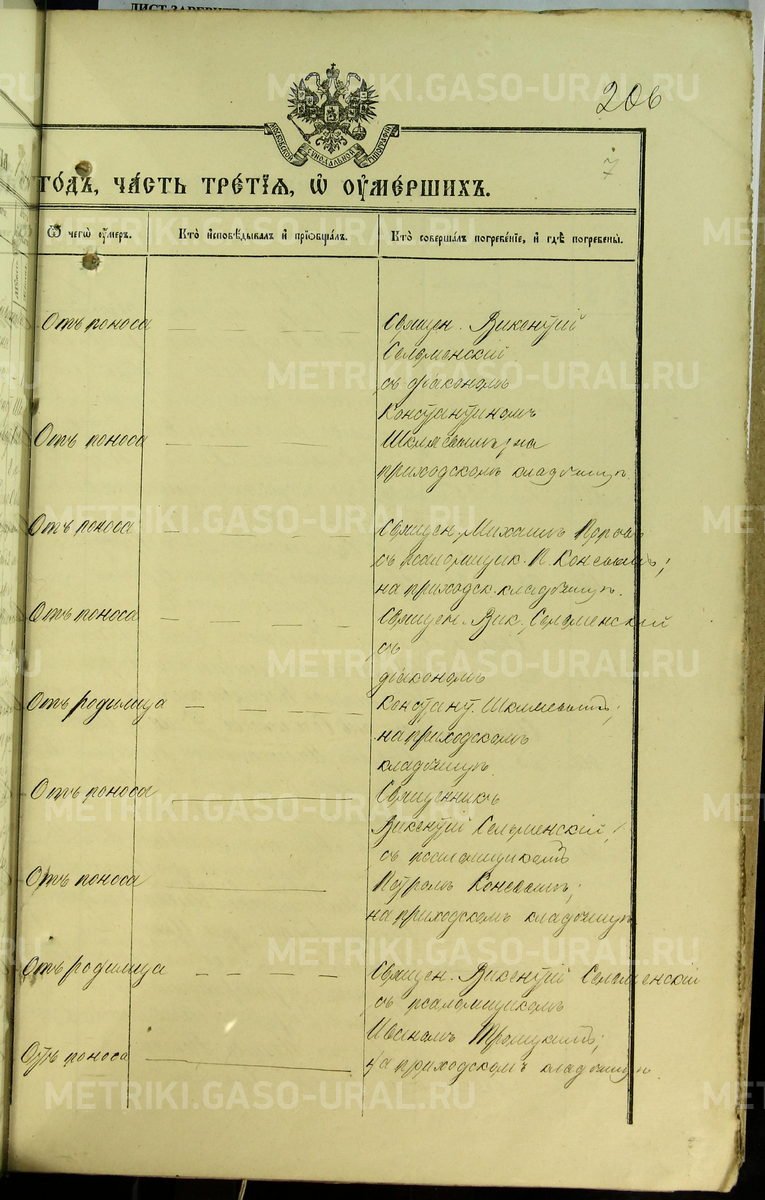 ЛИСТ ЗАВЕРИТ
206
МОСКОВСКОЙ СѴНОДАЛЬНОЙ ТИПОГРАФІИ
7
ГОДЪ, ЧАСТЬ ТРЕТІѦ, Ѡ ОУМЕРШИХЪ.
Ѿ чегѡ оумеръ.
Кто исповѣдывалъ и приобщалъ.
Кто совершалъ погребеніе, и гдѣ погребены.
Отъ поноса
Священ. Викентій
Селеменскій
съ діакономъ
Константиномъ
Отъ поноса
на
приходскомъ кладбищѣ
Отъ поноса
Священ. Михаилъ Поповъ
съ псаломщик. П.
на приходск. кладбищѣ.
Отъ поноса
Священ. Вик. Селеменскій
съ
діакономъ
Отъ родимца
Констант.
на приходскомъ
кладбищѣ
Отъ поноса
Священникъ
Викентій Селеменскій
съ псаломщикомъ
Отъ поноса
Петромъ
на приходскомъ кладбищѣ
Отъ родимца
Священ. Викентій Селеменскій
съ псаломщикомъ
Иваномъ Троицкимъ;
Отъ поноса
на приходскомъ кладбищѣ
METRIKI.GASO-URAL.RU